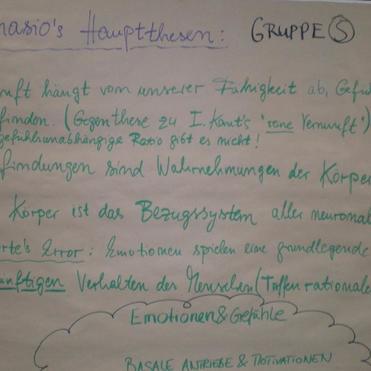 nasio's Hauptthesen: GRUPPE S
nft hängt von unserer Fähigkeit ab, Gefü
finden. (Gegenthese zu I. Kant's "reine Vernunft")
gefühlsunabhängige Ratio gibt es nicht!
findungen sind Wahrnehmungen der Körper
Körper ist das Bezugssystem aller neuronal
rte's Error: Emotionen spielen eine grundlegende
nftigen Verhalten des Menschen (Treffen rationale
Emotionen & Gefühle
BASALE ANTRIEBE & MOTIVATIONEN